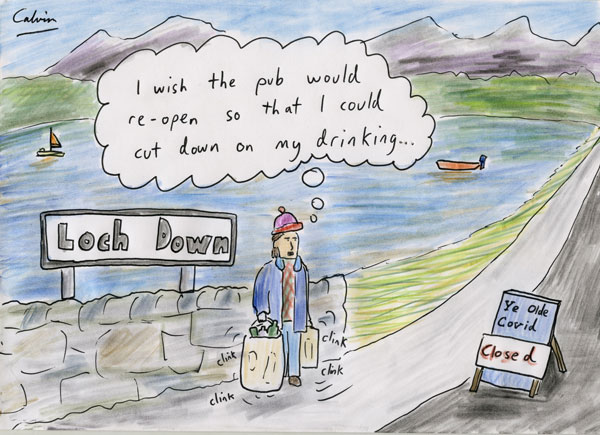 Calvin
I wish the pub would
re-open so that I could
cut down on my drinking...
Loch Down
clink
clink
clink
clink
Ye Olde
Covid
Closed